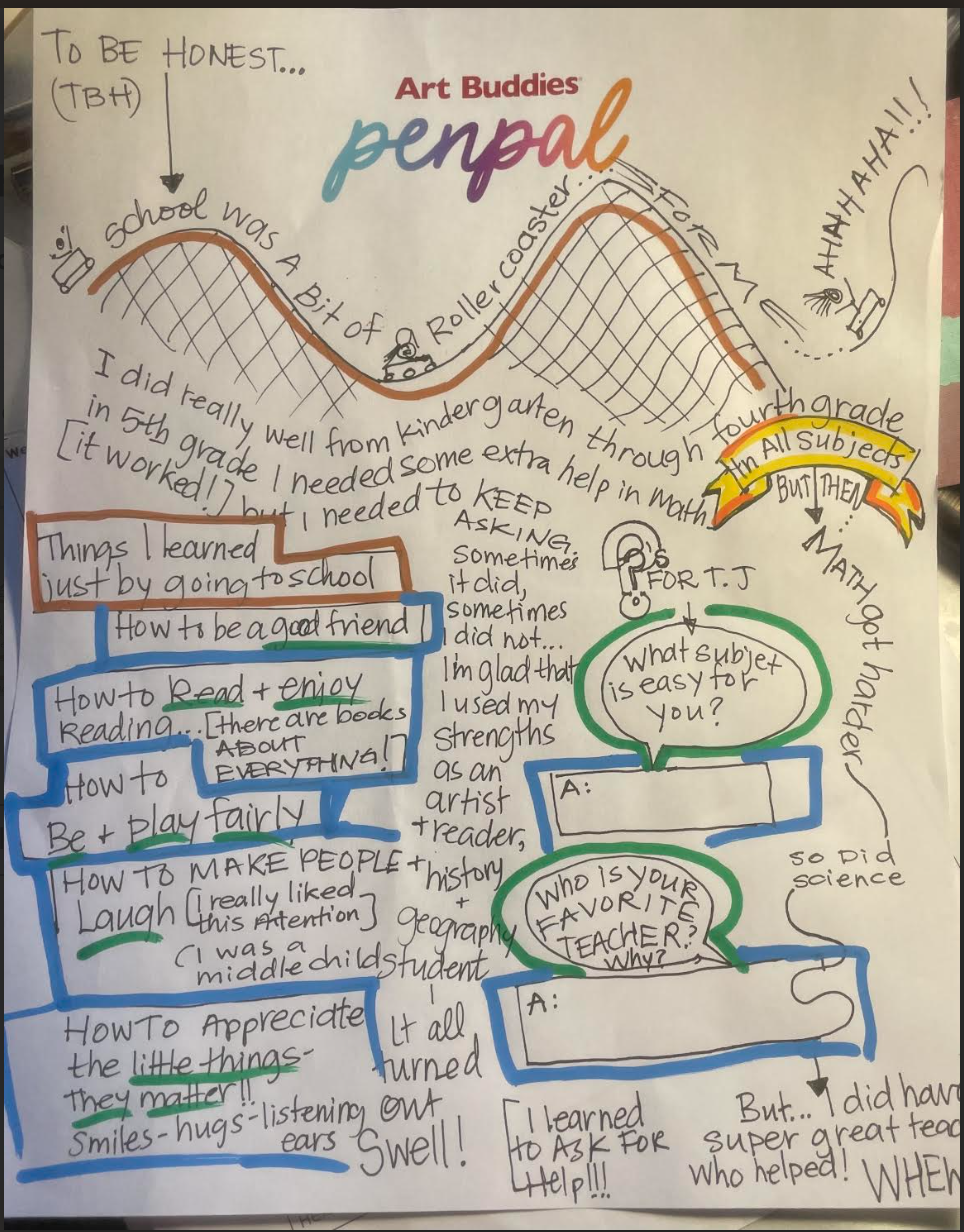 TO BE HONEST...
(TBH)
Art Buddies
penpal
school was A Bit of Rollercoaster... FOR ME
AHAHAHA!!!
I did really well from kindergarten through fourth grade
In All Subjects
BUT THEN...
in 5th grade I needed some extra help in math
[it worked!] but I needed to KEEP
ASKING.
sometimes
it did,
sometimes
I did not...
I'm glad that
I used my
strengths
as an
artist
+ reader,
+ history
+
geography
student
It all
turned
out
Swell!
Things I learned
just by going to school
How to be a good friend
How to Read + enjoy
Reading... [there are books
ABOUT
EVERYTHING!]
How to
Be + play fairly
HOW TO MAKE PEOPLE
Laugh [I really liked
this Attention]
(I was a
middle child
HOW TO Appreciate
the little things-
they matter!!
Smiles-hugs-listening
ears
?'s
FOR T.J
what subjet
is easy for
you?
A:
WHO IS YOUR
FAVORITE
TEACHER?
why?
A:
MATH got harder
so Did
science
But... I did hav
super great teac
who helped! WHEW
[I learned
to ASK FOR
Help!!!